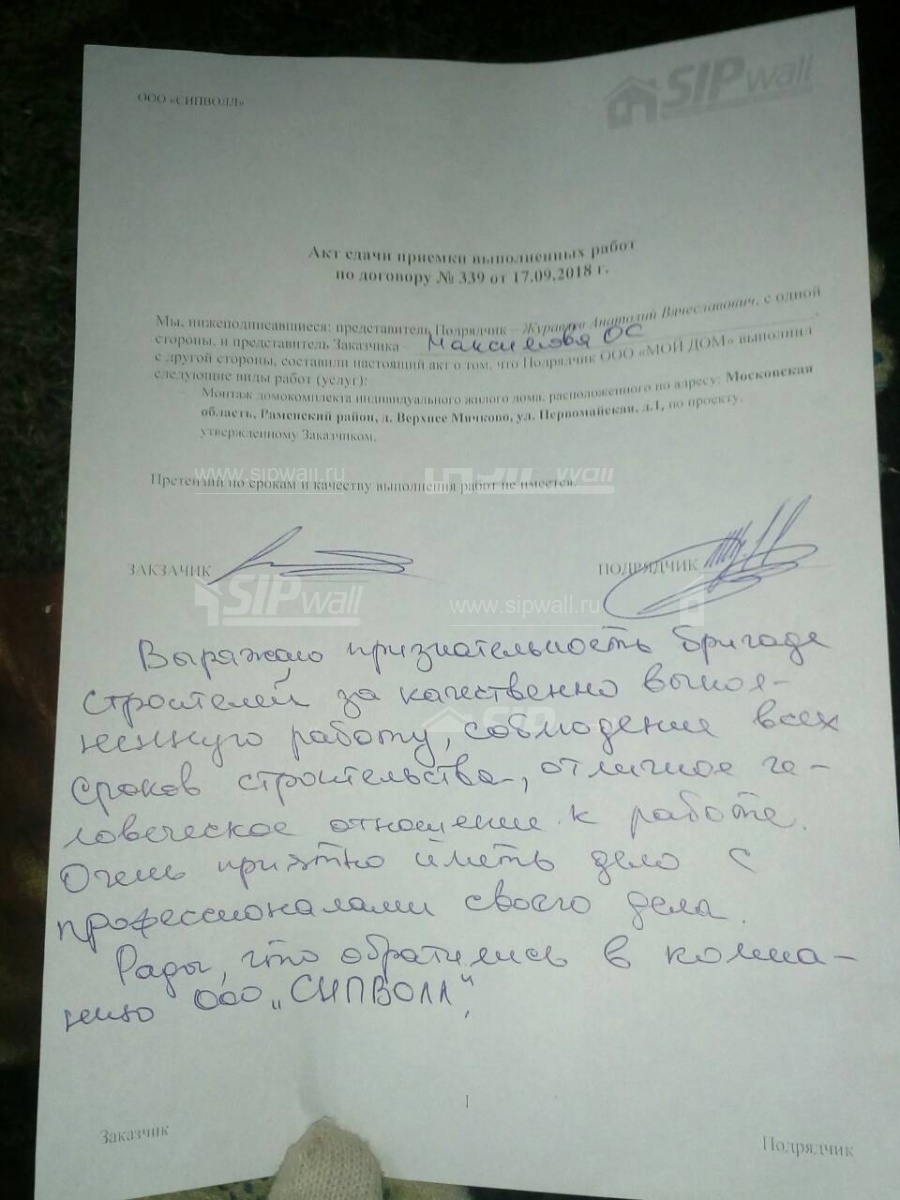 ООО «СИПВОЛЛ»
SIPwall
Акт сдачи приемки выполненных работ
по договору № 339 от 17.09.2018 г.
Мы, нижеподписавшиеся: представитель Подрядчик – Анатолий Вячеславович, с одной
стороны, и представитель Заказчика – Максимова ОС
с другой стороны, составили настоящий акт о том, что Подрядчик ООО «МОЙ ДОМ» выполнил
следующие виды работ (услуг):
- Монтаж домокомплекта индивидуального жилого дома, расположенного по адресу: Московская
область, Раменский район, д. Верхнее Мячково, ул. Первомайская, д.1, по проекту,
утвержденному Заказчиком.
www.sipwall.ru
Претензий по срокам и качеству выполнения работ не имеется.
ЗАКЗАЧИК
ПОДРЯДЧИК
SIPwall
www.sipwall.ru
Выряжаю признательность бригаде
строителей за качественно выпол-
ненную работу, соблюдение всех
сроков строительства, отличное че-
ловеческое отношение к работе.
Очень приятно иметь дело с
профессионалами своего дела.
Рады, что обратились в компа-
нию ООО „СИПВОЛЛ".
1
Заказчик
Подрядчик